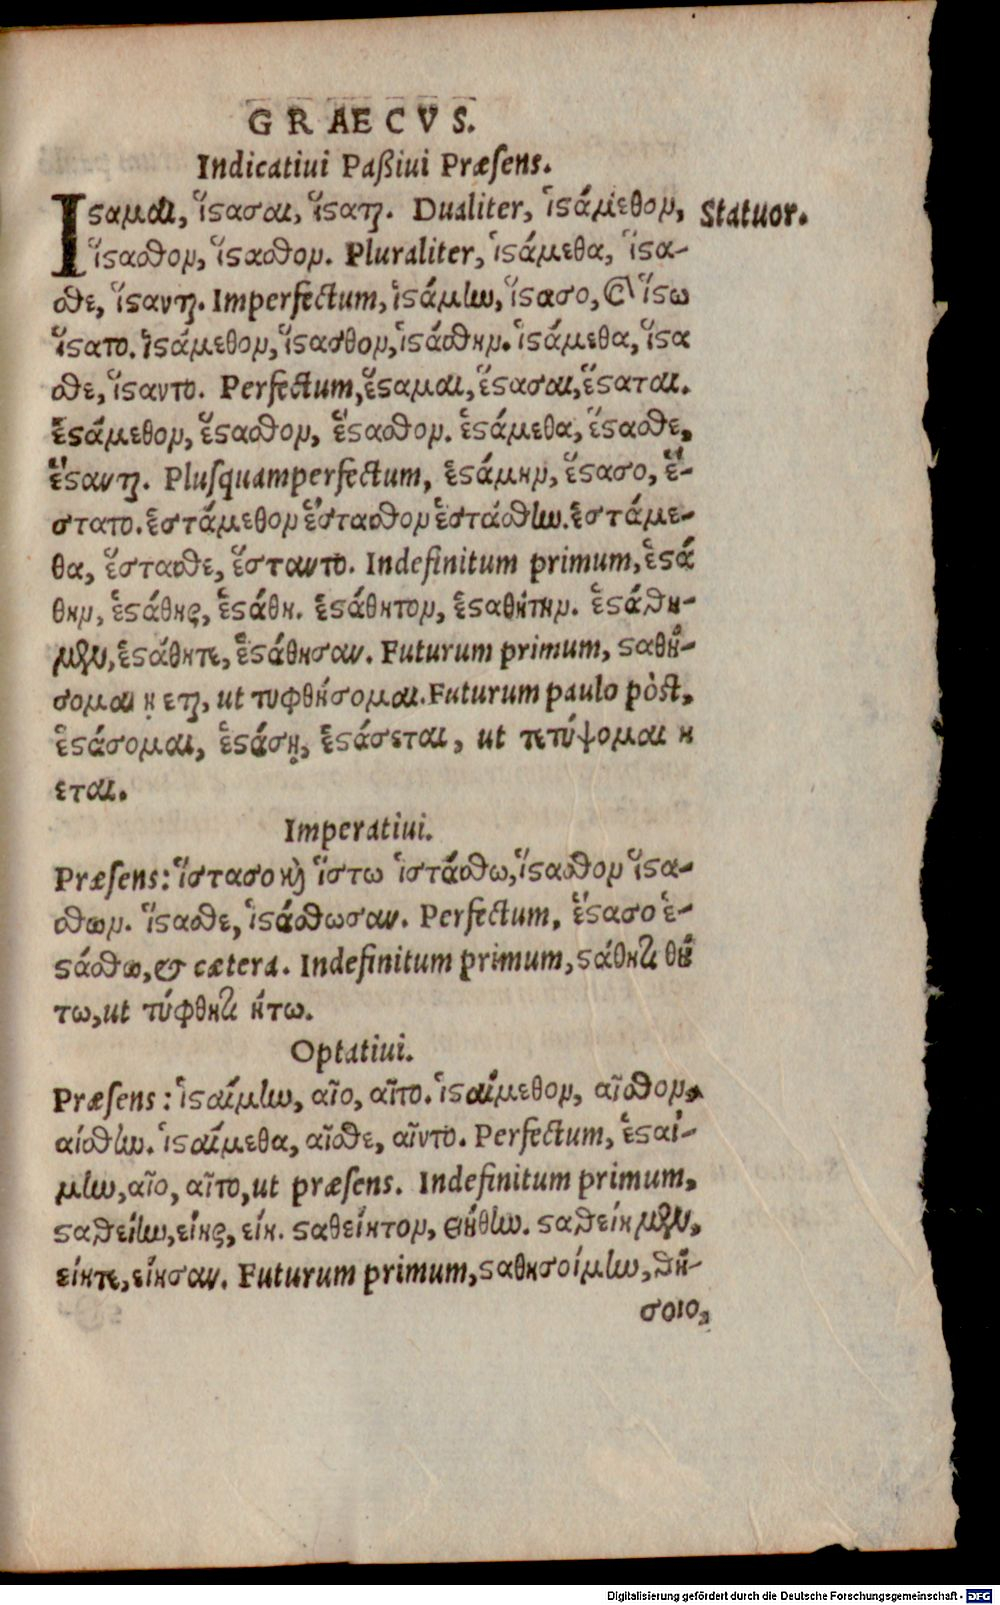 GRAECVS.
Indicatiui Paßiui Præsens.
Ἵϛαμαι, ἵϛασαι, ἵϛαται. Dualiter, ἱϛάμεθον, Statuor.
ἵϛασθον, ἵϛασθον. Pluraliter, ἱϛάμεθα, ἵϛα-
σθε, ἵϛανται. Imperfectum, ἱϛάμην, ἵϛασο, & ἵϛω
ἵϛατο. ἱϛάμεθον, ἵϛασθον, ἱϛάσθην. ἱϛάμεθα, ἵϛα
σθε, ἵϛαντο. Perfectum, ἕϛαμαι, ἕϛασαι, ἕϛαται.
ἑϛάμεθον, ἕϛασθον, ἕϛασθον. ἑϛάμεθα, ἕϛασθε,
ἕϛανται. Plusquamperfectum, ἑϛάμην, ἕϛασο, ἕ-
στατο. ἑστάμεθον ἕστασθον ἑστάσθην. ἑστάμε-
θα, ἕστασθε, ἕσταντο. Indefinitum primum, ἐϛά
θην, ἐϛάθης, ἐϛάθη. ἐϛάθητον, ἐϛαθήτην. ἐϛάθη-
μεν, ἐϛάθητε, ἐϛάθησαν. Futurum primum, ϛαθή-
σομαι ῃ εται, ut τυφθήσομαι. Futurum paulo pòst,
ἑϛάσομαι, ἑϛάσῃ, ἑϛάσεται, ut τετύψομαι η
εται.
Imperatiui.
Præsens: ἵστασο καὶ ἵστω ἱστάσθω, ἵϛασθον ἵϛα-
σθων. ἵϛασθε, ἱϛάσθωσαν. Perfectum, ἕϛασο ἑ-
ϛάσθω, & cætera. Indefinitum primum, ϛάθητι θή
τω, ut τύφθητι ήτω.
Optatiui.
Præsens: ἱϛαίμην, αῖο, αῖτο. ἱϛαίμεθον, αῖσθον,
αίσθην. ἱϛαίμεθα, αῖσθε, αῖντο. Perfectum, ἑϛαί-
μην, αῖο, αῖτο, ut præsens. Indefinitum primum,
ϛαθείην, είης, είη. ϛαθείητον, θήτην. ϛαθείημεν,
είητε, είησαν. Futurum primum, ϛαθησοίμην, θή-
σοιο,
Digitalisierung gefördert durch die Deutsche Forschungsgemeinschaft - DFG